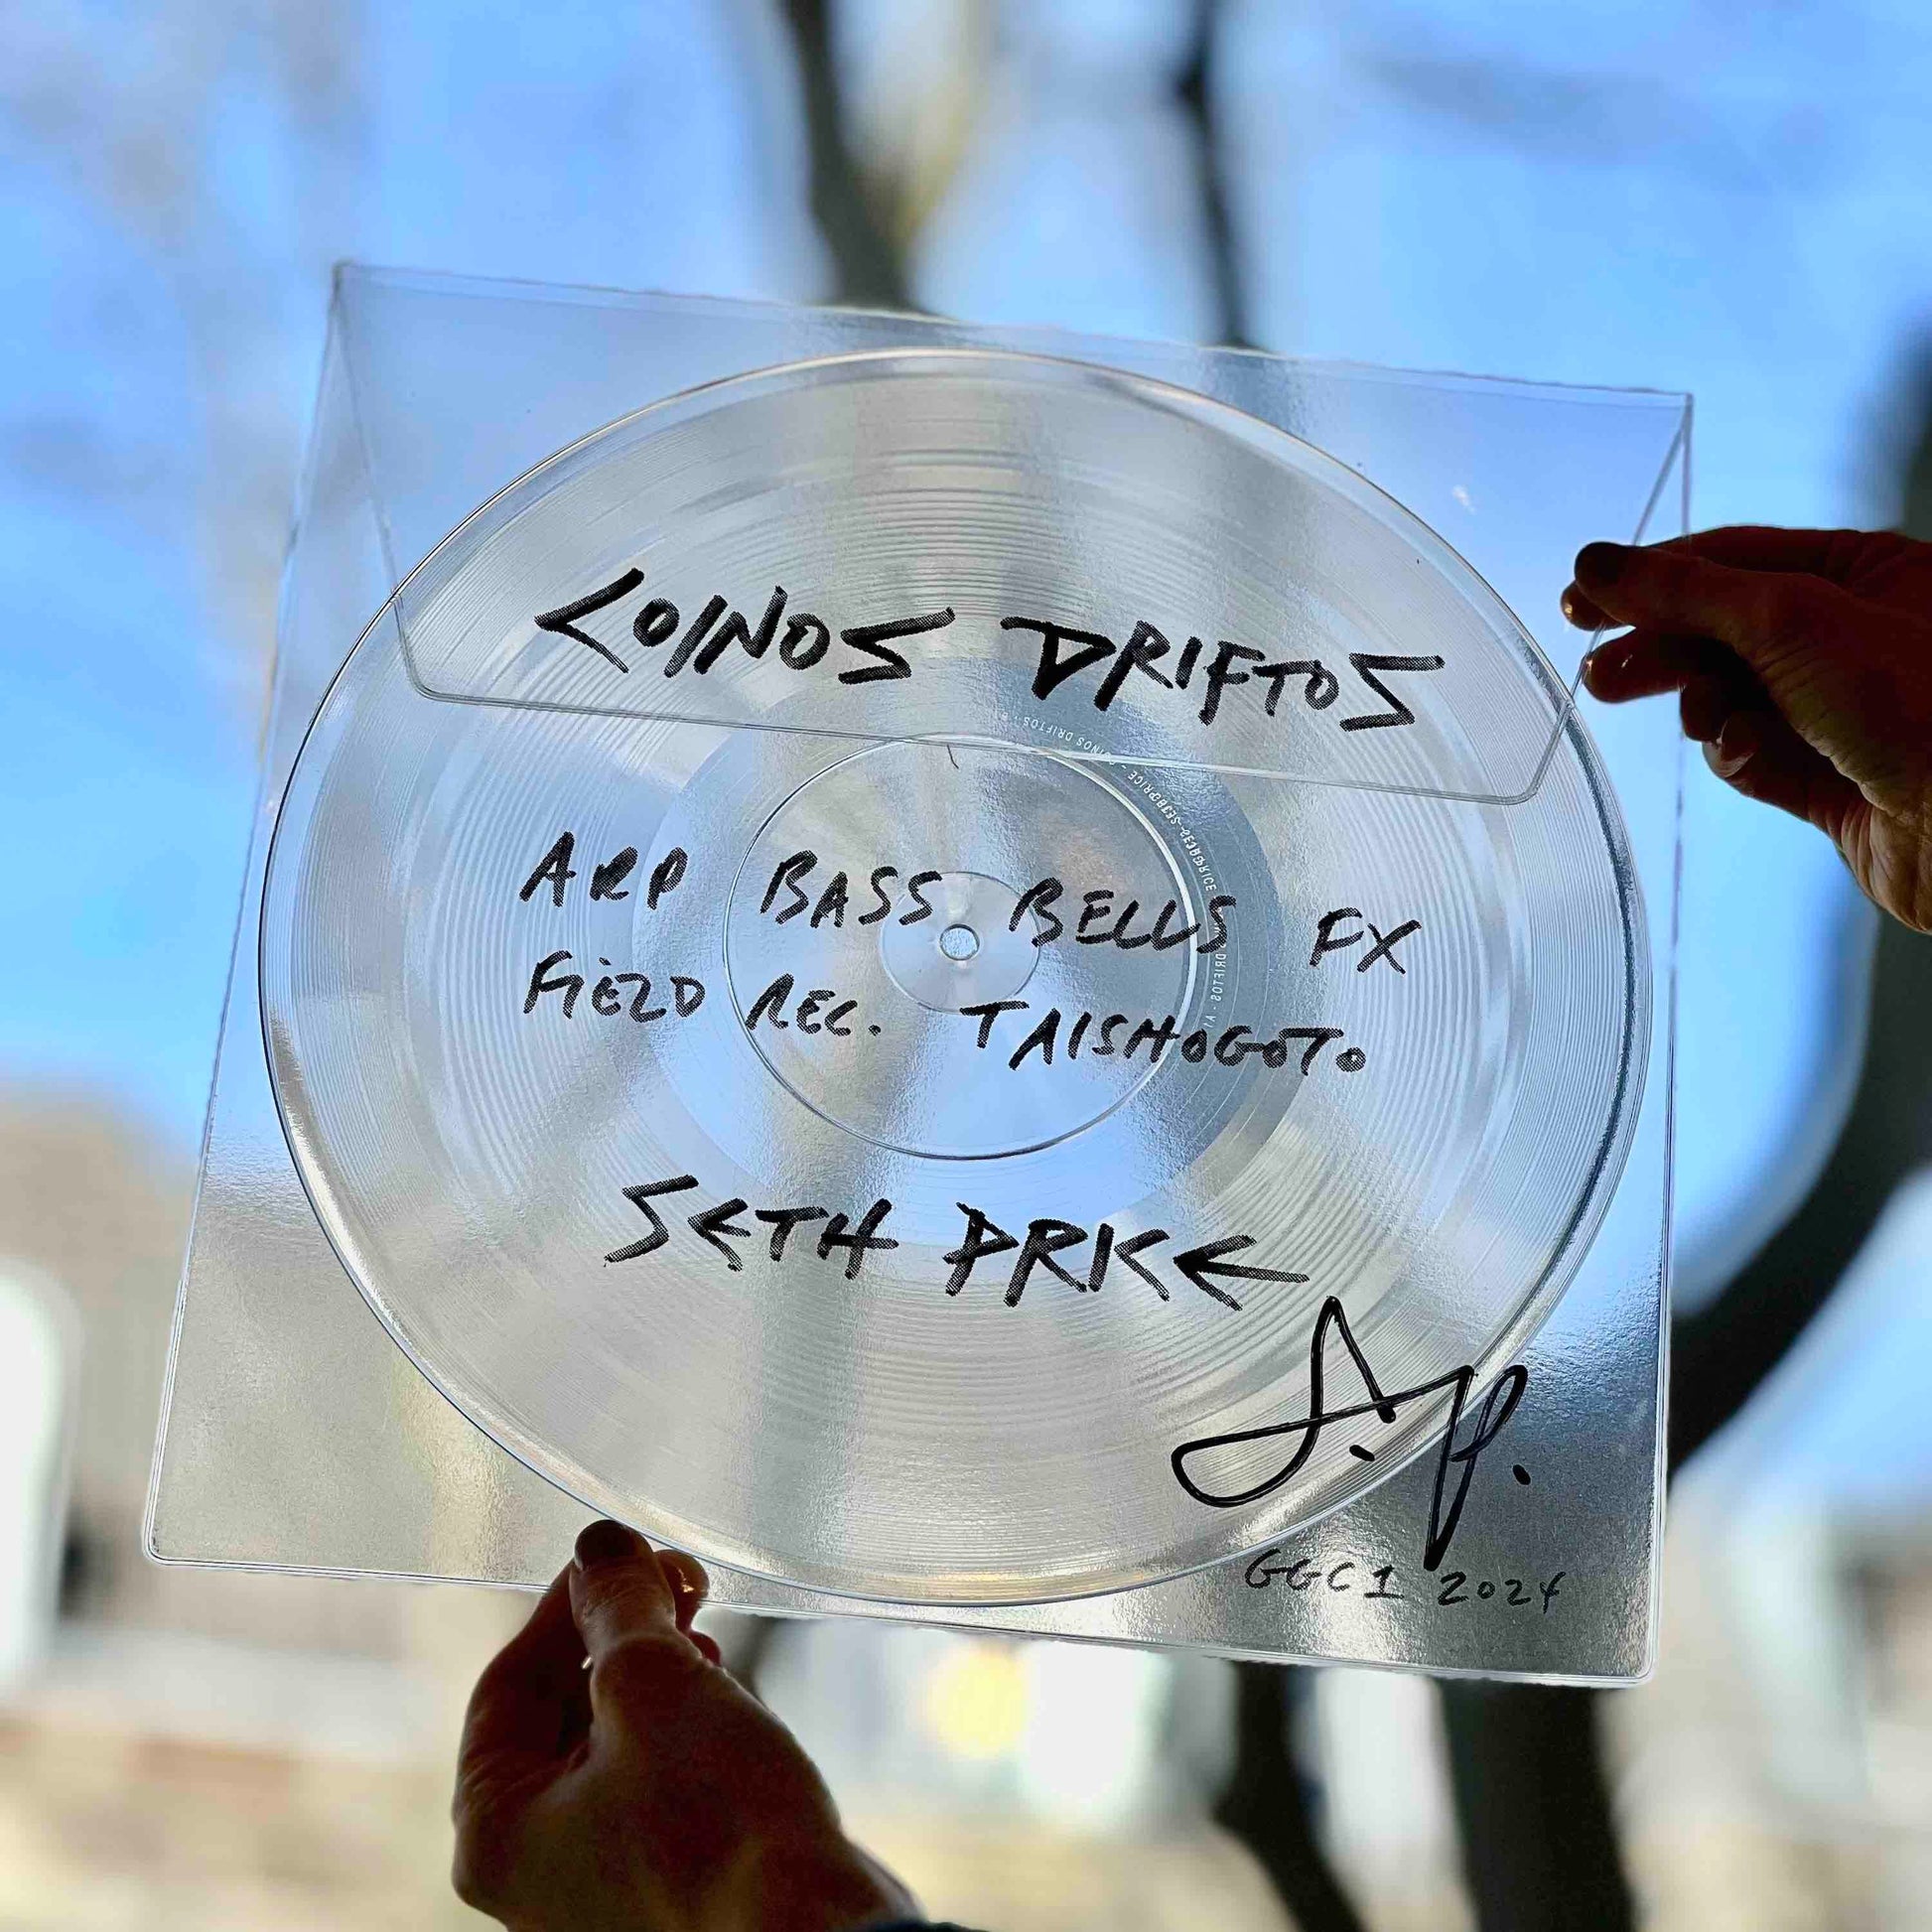 COINOS DRIFTOS
ARP BASS BELLS FX
FIELD REC. TAISHOGOTO
SETH PRICE
S.P.
GGC1 2024